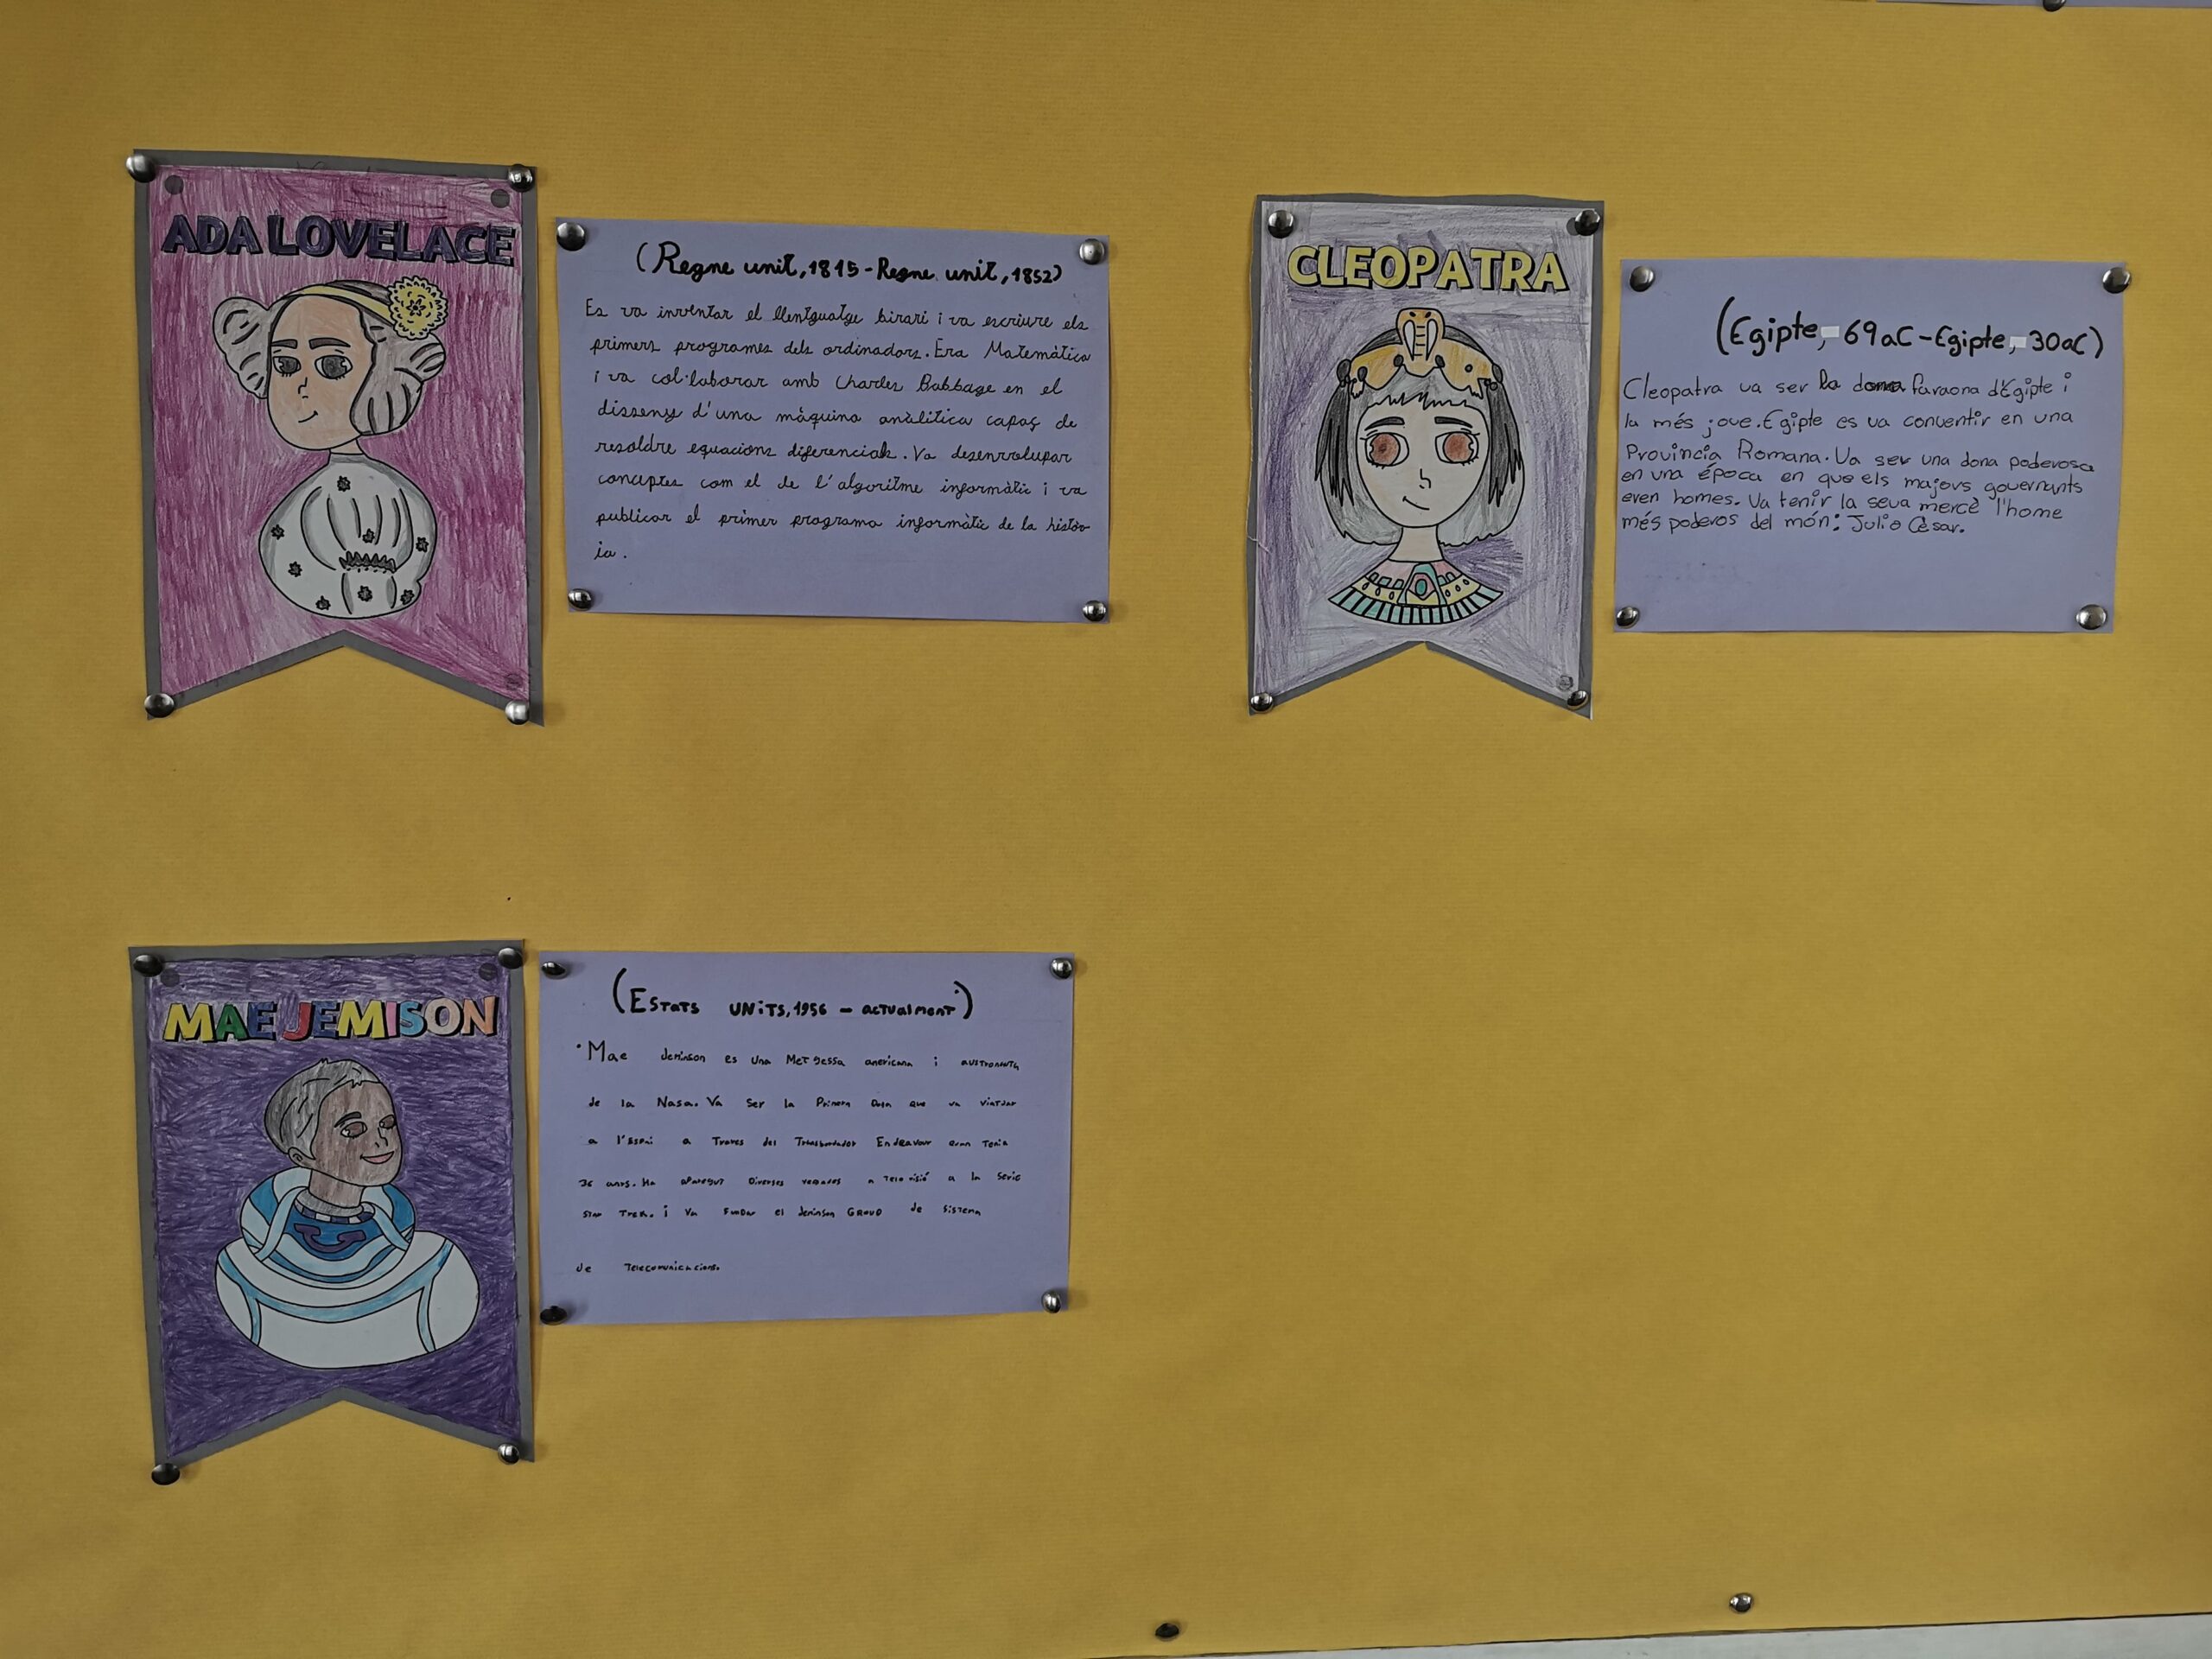 ADA LOVELACE
(Regne unit, 1815 - Regne unit, 1852)
Es va inventar el llentguatge birari i va escriure els
primers programes dels ordinadors. Era Matemàtica
i va col·laborar amb Charles Babbage en el
disseny d'una màquina analítica capaç de
resoldre equacions diferencials. Va desenvolupar
conceptes com el de l'algoritme informàtic i va
publicar el primer programa informàtic de la histò-
ia.
CLEOPATRA
(Egipte, 69aC - Egipte, 30aC)
Cleopatra va ser la dona faraona d'Egipte i
la més jove. Egipte es va conventir en una
Provincia Romana. Va ser una dona poderosa
en una época en que els majors governants
eren homes. Va tenir la seva mercè l'home
més poderos del món: Julio Cèsar.
MAE JEMISON
(Estats units, 1956 - actualment)
·Mae Jeminson es una Metgessa americana i austronauta
de la Nasa. Va ser la Primera Dona que va viatjar
a l'Espai a Traves del Trasbordador Endeavour quan Tenia
36 anys. Ha aparegut Diverses vegades a Televisió a la serie
Star Trek. i va Fundar el Jeminson GROUP de Sistema
de Telecomunicacions.